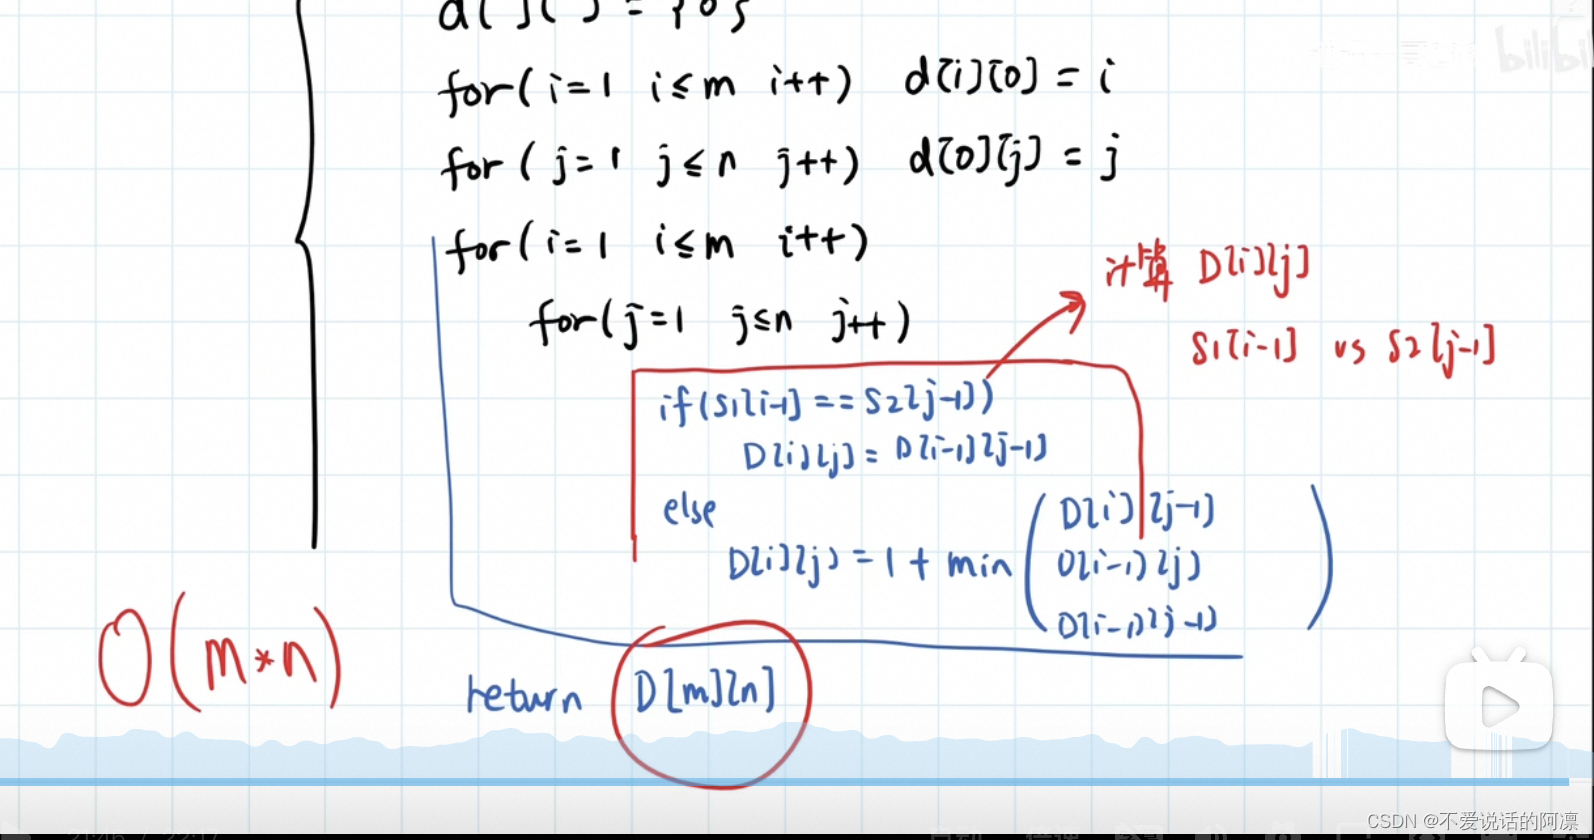 d[ ][ ] = {0}
for( i=1 i≤m i++) d[i][0] = i
for( j=1 j≤n j++) d[0][j] = j
for( i=1 i≤m i++)
for( j=1 j≤n j++)
计算 D[i][j]
S1[i-1] vs S2[j-1]
if(S1[i-1]==S2[j-1])
D[i][j] = D[i-1][j-1]
else
D[i][j] = 1 + min
D[i][j-1]
D[i-1][j]
D[i-1][j-1]
O(m*n)
return D[m][n]
bilibili
CSDN @不爱说话的阿凛